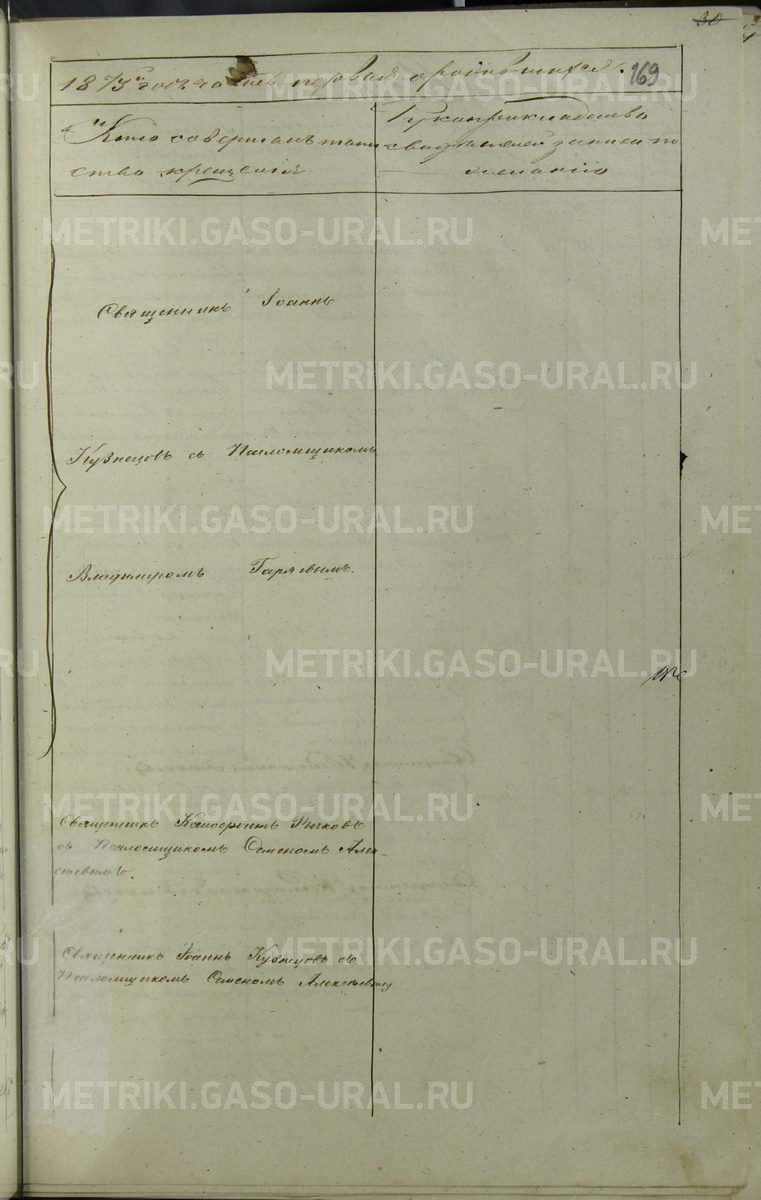 30
169
1875 года часть первая о родившихся.
Кто совершалъ таин
ство крещенія
Рукоприкладство
свидѣтелей записи по
желанію
Священникъ Іоаннъ
Кузнецовъ съ Псаломщикомъ
Владиміромъ Гаряевымъ.
Священникъ Рычковъ
съ Псаломщикомъ Семеномъ Алек-
сѣевымъ.
Священникъ Іоаннъ Кузнецовъ съ
Псаломщикомъ Семеномъ Алексѣевымъ
METRIKI.GASO-URAL.RU